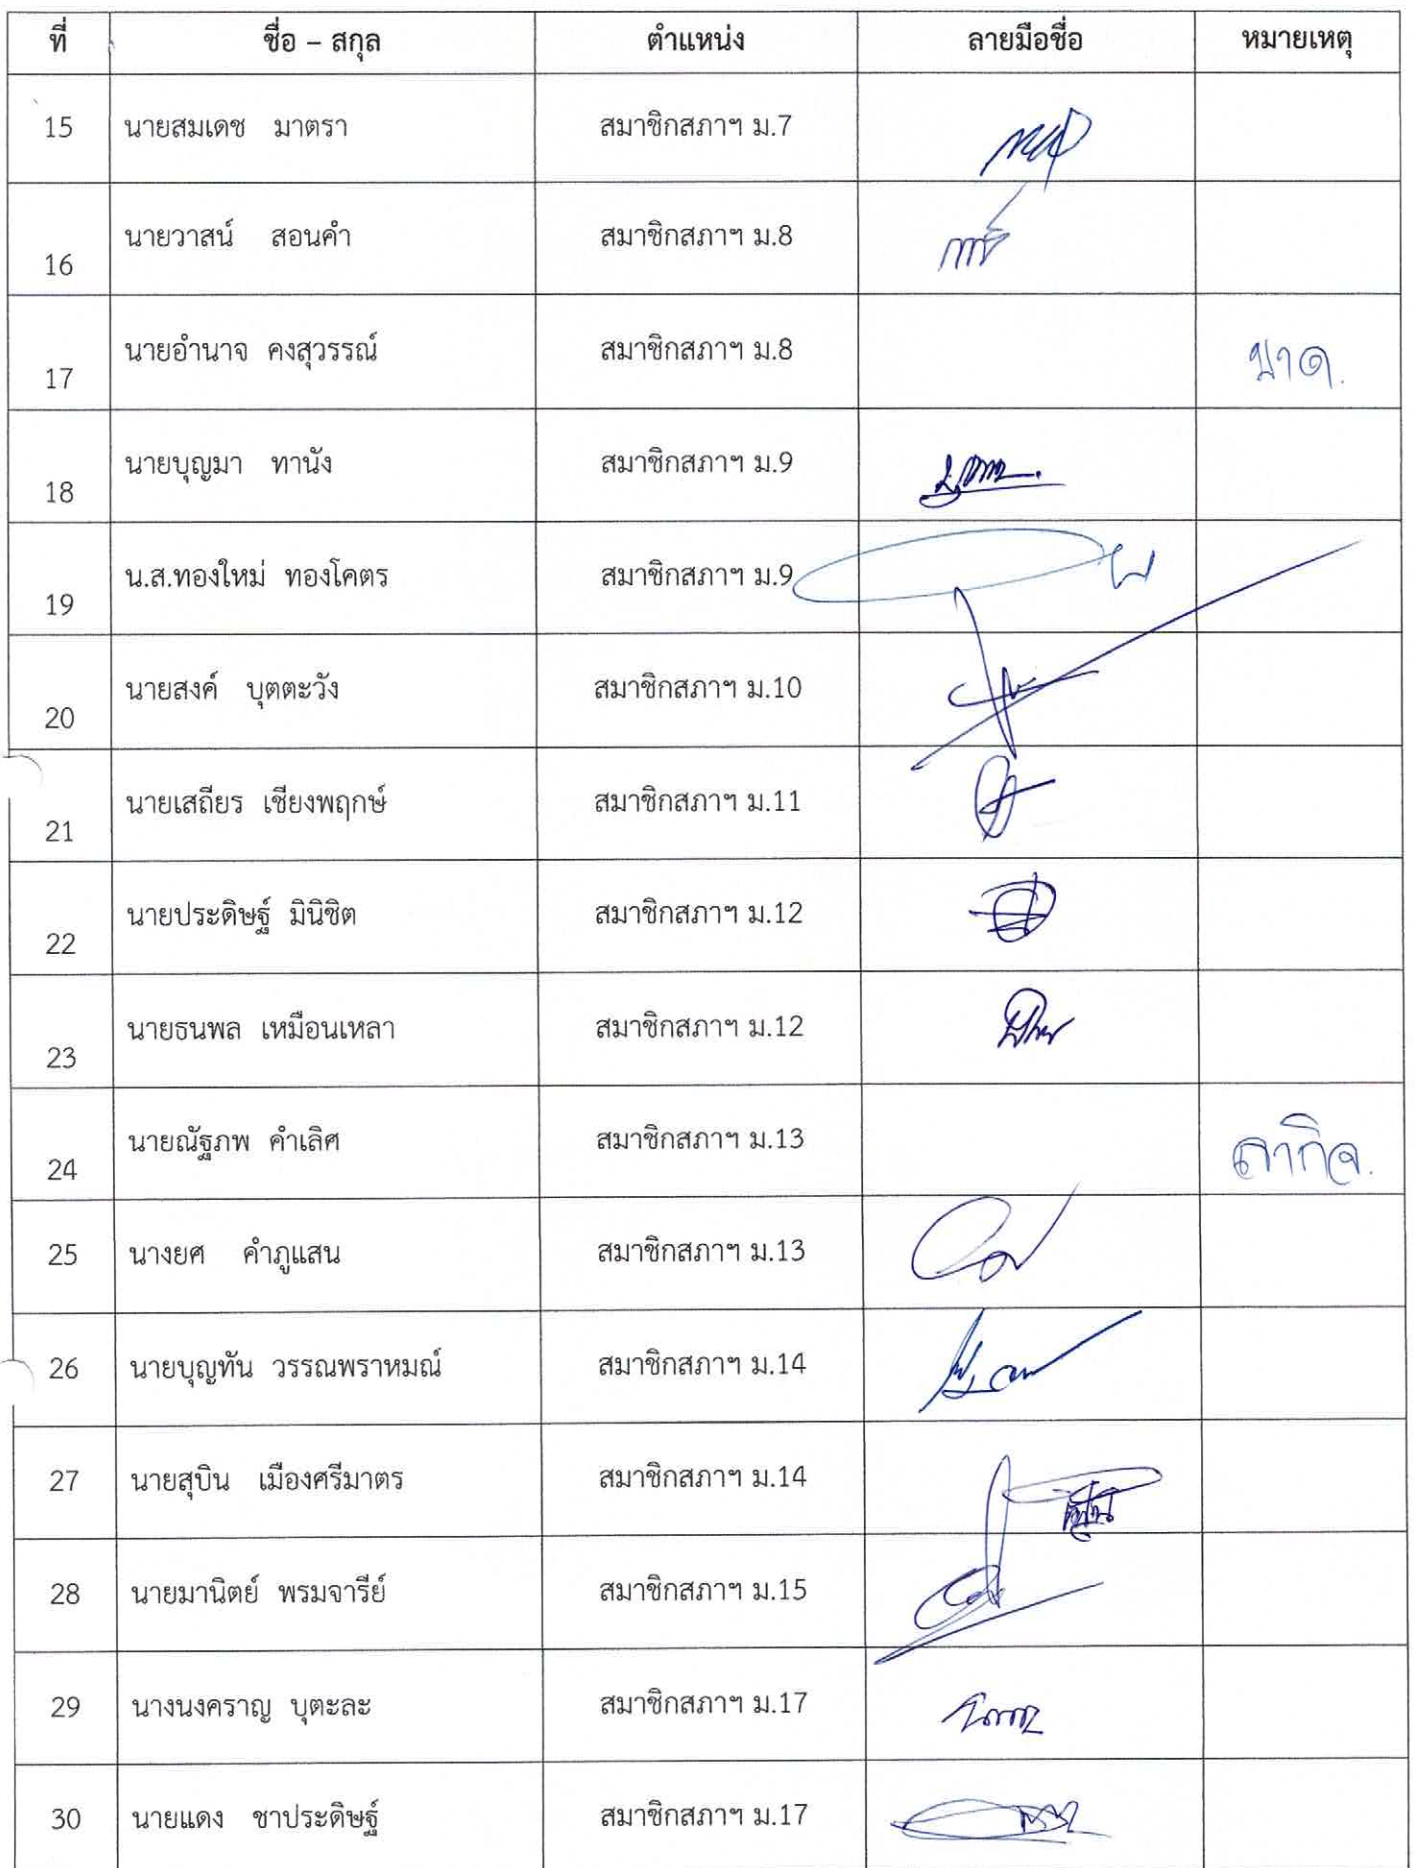 ที่ ชื่อ – สกุล ตำแหน่ง ลายมือชื่อ หมายเหตุ
15 นายสมเดช มาตรา สมาชิกสภาฯ ม.7
16 นายวาสน์ สอนคำ สมาชิกสภาฯ ม.8
17 นายอำนาจ คงสุวรรณ์ สมาชิกสภาฯ ม.8 ขาด.
18 นายบุญมา ทานัง สมาชิกสภาฯ ม.9
19 น.ส.ทองใหม่ ทองโคตร สมาชิกสภาฯ ม.9
20 นายสงค์ บุตตะวัง สมาชิกสภาฯ ม.10
21 นายเสถียร เชียงพฤกษ์ สมาชิกสภาฯ ม.11
22 นายประดิษฐ์ มินิชิต สมาชิกสภาฯ ม.12
23 นายธนพล เหมือนเหลา สมาชิกสภาฯ ม.12
24 นายณัฐภพ คำเลิศ สมาชิกสภาฯ ม.13 ลากิจ.
25 นางยศ คำภูแสน สมาชิกสภาฯ ม.13
26 นายบุญทัน วรรณพราหมณ์ สมาชิกสภาฯ ม.14
27 นายสุบิน เมืองศรีมาตร สมาชิกสภาฯ ม.14
28 นายมานิตย์ พรมจารีย์ สมาชิกสภาฯ ม.15
29 นางนงคราญ บุตะละ สมาชิกสภาฯ ม.17
30 นายแดง ชาประดิษฐ์ สมาชิกสภาฯ ม.17